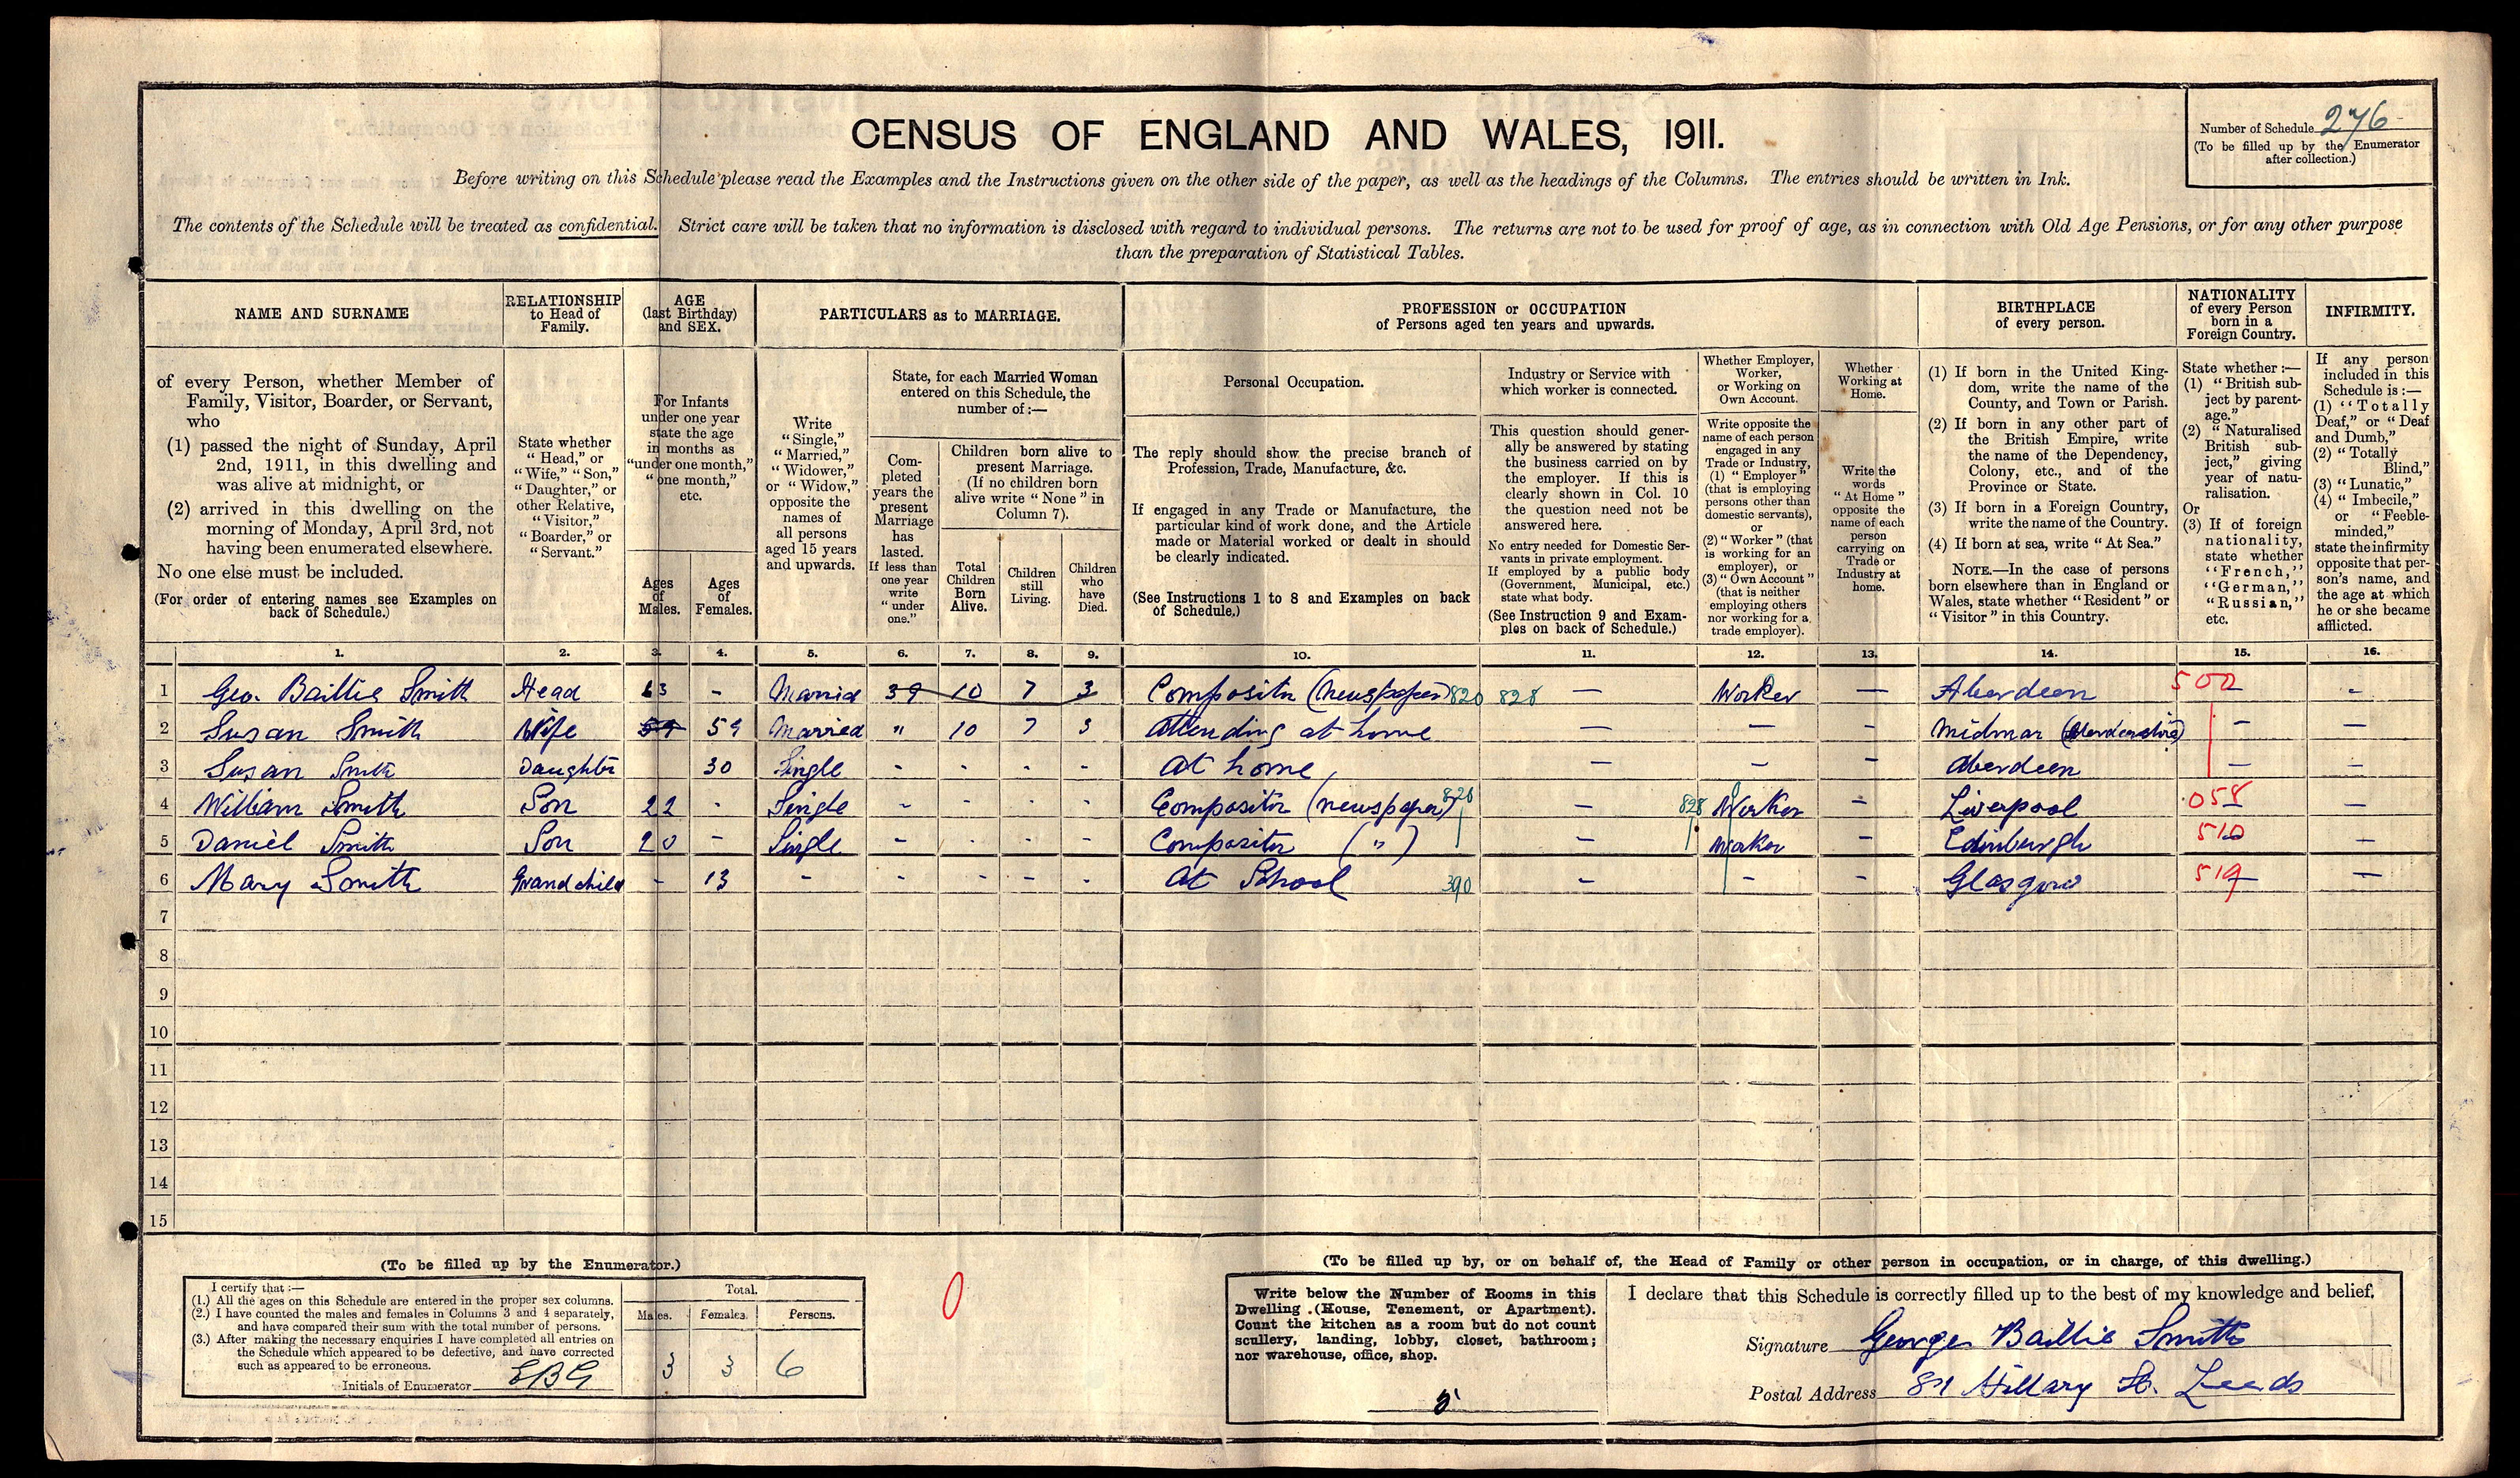 CENSUS OF ENGLAND AND WALES, 1911.
Number of Schedule 276
(To be filled up by the Enumerator
after collection.)
Before writing on this Schedule please read the Examples and the Instructions given on the other side of the paper, as well as the headings of the Columns. The entries should be written in Ink.
The contents of the Schedule will be treated as confidential. Strict care will be taken that no information is disclosed with regard to individual persons. The returns are not to be used for proof of age, as in connection with Old Age Pensions, or for any other purpose
than the preparation of Statistical Tables.
NAME AND SURNAME
of every Person, whether Member of
Family, Visitor, Boarder, or Servant,
who
(1) passed the night of Sunday, April
2nd, 1911, in this dwelling and
was alive at midnight, or
(2) arrived in this dwelling on the
morning of Monday, April 3rd, not
having been enumerated elsewhere.
No one else must be included.
(For order of entering names see Examples on
back of Schedule.)
RELATIONSHIP
to Head of
Family.
State whether
"Head," or
"Wife," "Son,"
"Daughter," or
other Relative,
"Visitor,"
"Boarder," or
"Servant."
AGE
(last Birthday)
and SEX.
For Infants
under one year
state the age
in months as
"under one month,"
"one month,"
etc.
Ages
of
Males.
Ages
of
Females.
PARTICULARS as to MARRIAGE.
Write
"Single,"
"Married,"
"Widower,"
or "Widow,"
opposite the
names of
all persons
aged 15 years
and upwards.
State, for each Married Woman
entered on this Schedule, the
number of:—
Com-
pleted
years the
present
Marriage
has
lasted.
If less than
one year
write
"under
one."
Children born alive to
present Marriage.
(If no children born
alive write "None" in
Column 7).
Total
Children
Born
Alive.
Children
still
Living.
Children
who
have
Died.
PROFESSION or OCCUPATION
of Persons aged ten years and upwards.
Personal Occupation.
The reply should show the precise branch of
Profession, Trade, Manufacture, &c.
If engaged in any Trade or Manufacture, the
particular kind of work done, and the Article
made or Material worked or dealt in should
be clearly indicated.
(See Instructions 1 to 8 and Examples on back
of Schedule.)
Industry or Service with
which worker is connected.
This question should gener-
ally be answered by stating
the business carried on by
the employer. If this is
clearly shown in Col. 10
the question need not be
answered here.
No entry needed for Domestic Ser-
vants in private employment.
If employed by a public body
(Government, Municipal, etc.)
state what body.
(See Instruction 9 and Exam-
ples on back of Schedule.)
Whether Employer,
Worker,
or Working on
Own Account.
Write opposite the
name of each person
engaged in any
Trade or Industry,
(1) "Employer"
(that is employing
persons other than
domestic servants),
or
(2) "Worker" (that
is working for an
employer), or
(3) "Own Account"
(that is neither
employing others
nor working for a
trade employer).
Whether
Working at
Home.
Write the
words
"At Home"
opposite the
name of each
person
carrying on
Trade or
Industry at
home.
BIRTHPLACE
of every person.
(1) If born in the United King-
dom, write the name of the
County, and Town or Parish.
(2) If born in any other part of
the British Empire, write
the name of the Dependency,
Colony, etc., and of the
Province or State.
(3) If born in a Foreign Country,
write the name of the Country.
(4) If born at sea, write "At Sea."
NOTE.—In the case of persons
born elsewhere than in England or
Wales, state whether "Resident" or
"Visitor" in this Country.
NATIONALITY
of every Person
born in a
Foreign Country.
State whether:—
(1) "British sub-
ject by parent-
age."
(2) "Naturalised
British sub-
ject," giving
year of natu-
ralisation.
Or
(3) If of foreign
nationality,
state whether
"French,"
"German,"
"Russian,"
etc.
INFIRMITY.
If any person
included in this
Schedule is:—
(1) "Totally
Deaf," or "Deaf
and Dumb,"
(2) "Totally
Blind,"
(3) "Lunatic,"
(4) "Imbecile,"
or "Feeble-
minded,"
state the infirmity
opposite that per-
son's name, and
the age at which
he or she became
afflicted.
1. 2. 3. 4. 5. 6. 7. 8. 9. 10. 11. 12. 13. 14. 15. 16.
1 Geo. Baillie Smith Head 63 - Married 39 10 7 3 Compositor (Newspaper) 820 828 — Worker — Aberdeen 500 -
2 Susan Smith Wife 59 59 Married " 10 7 3 Attending at home — — — Midmar (Aberdeenshire) — —
3 Susan Smith Daughter 30 Single - - - - At home — — — Aberdeen — —
4 William Smith Son 22 - Single - - - - Compositor (newspaper) 820 — 828 Worker — Liverpool 058 —
5 Daniel Smith Son 20 - Single - - - - Compositor ( " ) — Worker — Edinburgh 510 —
6 Mary Smith Grandchild - 13 - - - - - At School 390 — - — Glasgow 519 —
7
8
9
10
11
12
13
14
15
(To be filled up by the Enumerator.)
I certify that:—
(1.) All the ages on this Schedule are entered in the proper sex columns.
(2.) I have counted the males and females in Columns 3 and 4 separately,
and have compared their sum with the total number of persons.
(3.) After making the necessary enquiries I have completed all entries on
the Schedule which appeared to be defective, and have corrected
such as appeared to be erroneous.
Initials of Enumerator
Total.
Males. Females. Persons.
3 3 6
0
(To be filled up by, or on behalf of, the Head of Family or other person in occupation, or in charge, of this dwelling.)
Write below the Number of Rooms in this
Dwelling (House, Tenement, or Apartment).
Count the kitchen as a room but do not count
scullery, landing, lobby, closet, bathroom;
nor warehouse, office, shop.
5
I declare that this Schedule is correctly filled up to the best of my knowledge and belief.
Signature George Baillie Smith
Postal Address Hillary St. Leeds